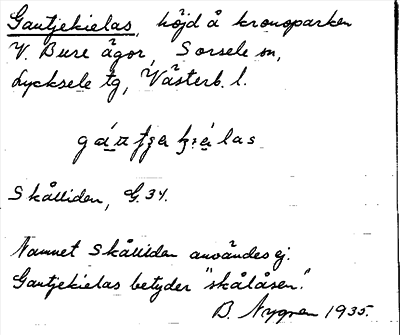 Gautjekielas, höjd å kronoparken
V. Bure ägor, Sorsele sn,
Lycksele tg, Västerb. l.
Skålliden, G. 34.
Namnet Skålliden användes ej.
Gautjekielas betyder "skålåsen".
B. Nygren 1935.